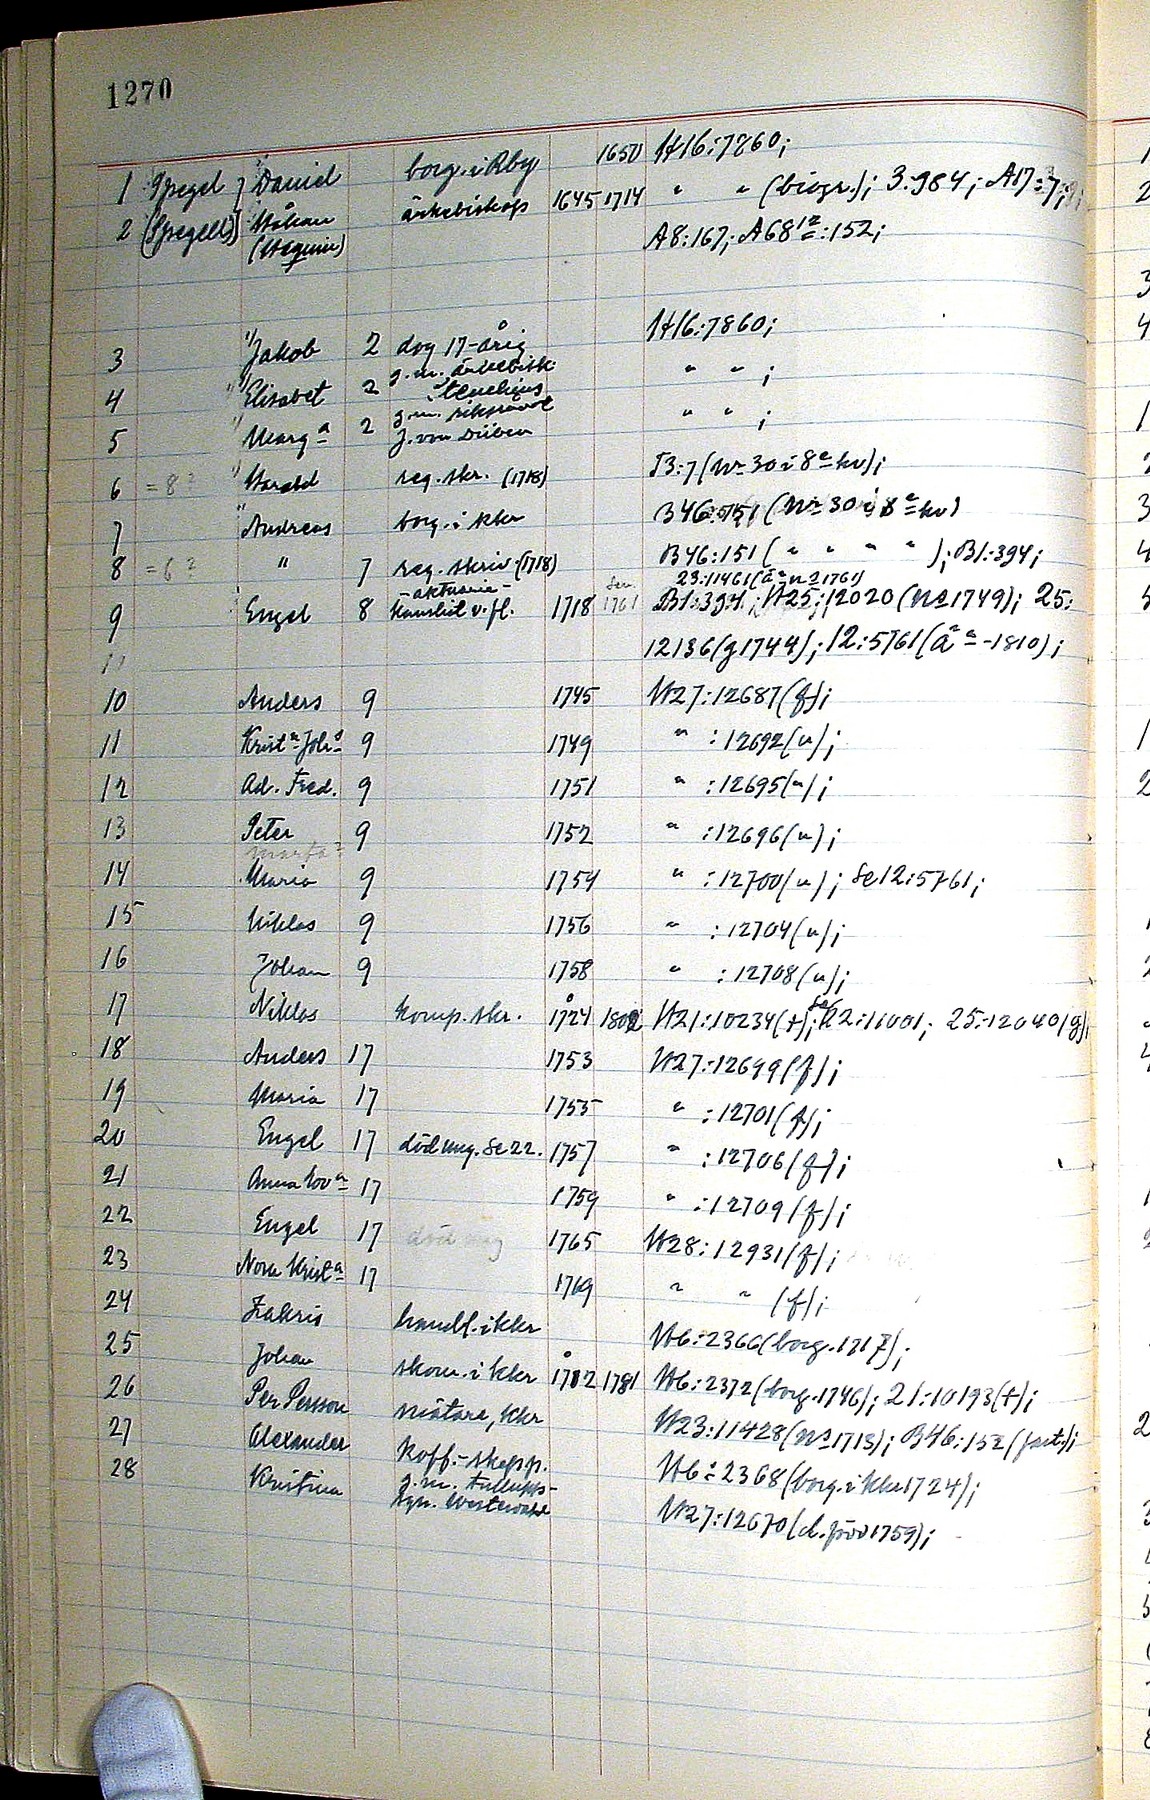 1270
1 Spegel, Daniel borg. i Rby 1650 H16:7860;
2 (Spegell) Håkan ärkebiskop 1645 1714 " " (biogr.); 3.984; A17:7;
(Haquin) A8:167; A68 12:152;
3 Jakob 2 dog 17-årig H16:7860;
4 Elisabet 2 g.m. ärkebisk " " ;
Steuchius
5 Marg a 2 g.m. " " ;
J. von Düben
6 = 8? Harald reg. skr. (1718) B:7 (nr 30 i 8e kv);
7 Andreas borg. i kkr B46:151 (nr 30 i 8e kv)
8 = 6? " 7 reg. skriv (1718) B46:151 ( " " " " ); B1:394;
23:11461 (ä n 1761)
9 Engel 8 kanslist v. fl. 1718 1761 B1:394; H25:12020 (n 1749); 25:
aktuarie
12136 (g 1744); 12:5761 (ä -1810);
10 Anders 9 1745 H27:12687 (f);
11 Krist a Joh 9 1749 " :12692 (");
12 Ad. Fred. 9 1751 " :12695 (");
13 Peter 9 1752 " :12696 (");
14 Maria 9 1754 " :12700 ("); Se 12:5761;
15 Niklas 9 1756 " :12704 (");
16 Johan 9 1758 " :12708 (");
17 Niklas komp. skr. 1724 1802 H21:10234 (†); 22:11001; 25:12040 (g);
18 Anders 17 1753 H27:12699 (f);
19 Maria 17 1755 " :12701 (f);
20 Engel 17 död ung. Se 22. 1757 " :12706 (f);
21 Anna Lov a 17 1759 " :12709 (f);
22 Engel 17 död ung 1765 H28:12931 (f);
23 Nora Krist a 17 1769 " " (f);
24 Zakris handl. i kkr H6:2366 (borg. 1717);
25 Johan skom. i kkr 1702 1781 H6:2372 (borg. 1746); 21:10193 (†);
26 Per Persson mätare, kkr H23:11428 (n 1713); B46:152 (fast.);
27 Alexander Koff.-skepp. H6:2368 (borg. i kkr 1724);
28 Kristina g.m. H27:12670 (d. före 1759);